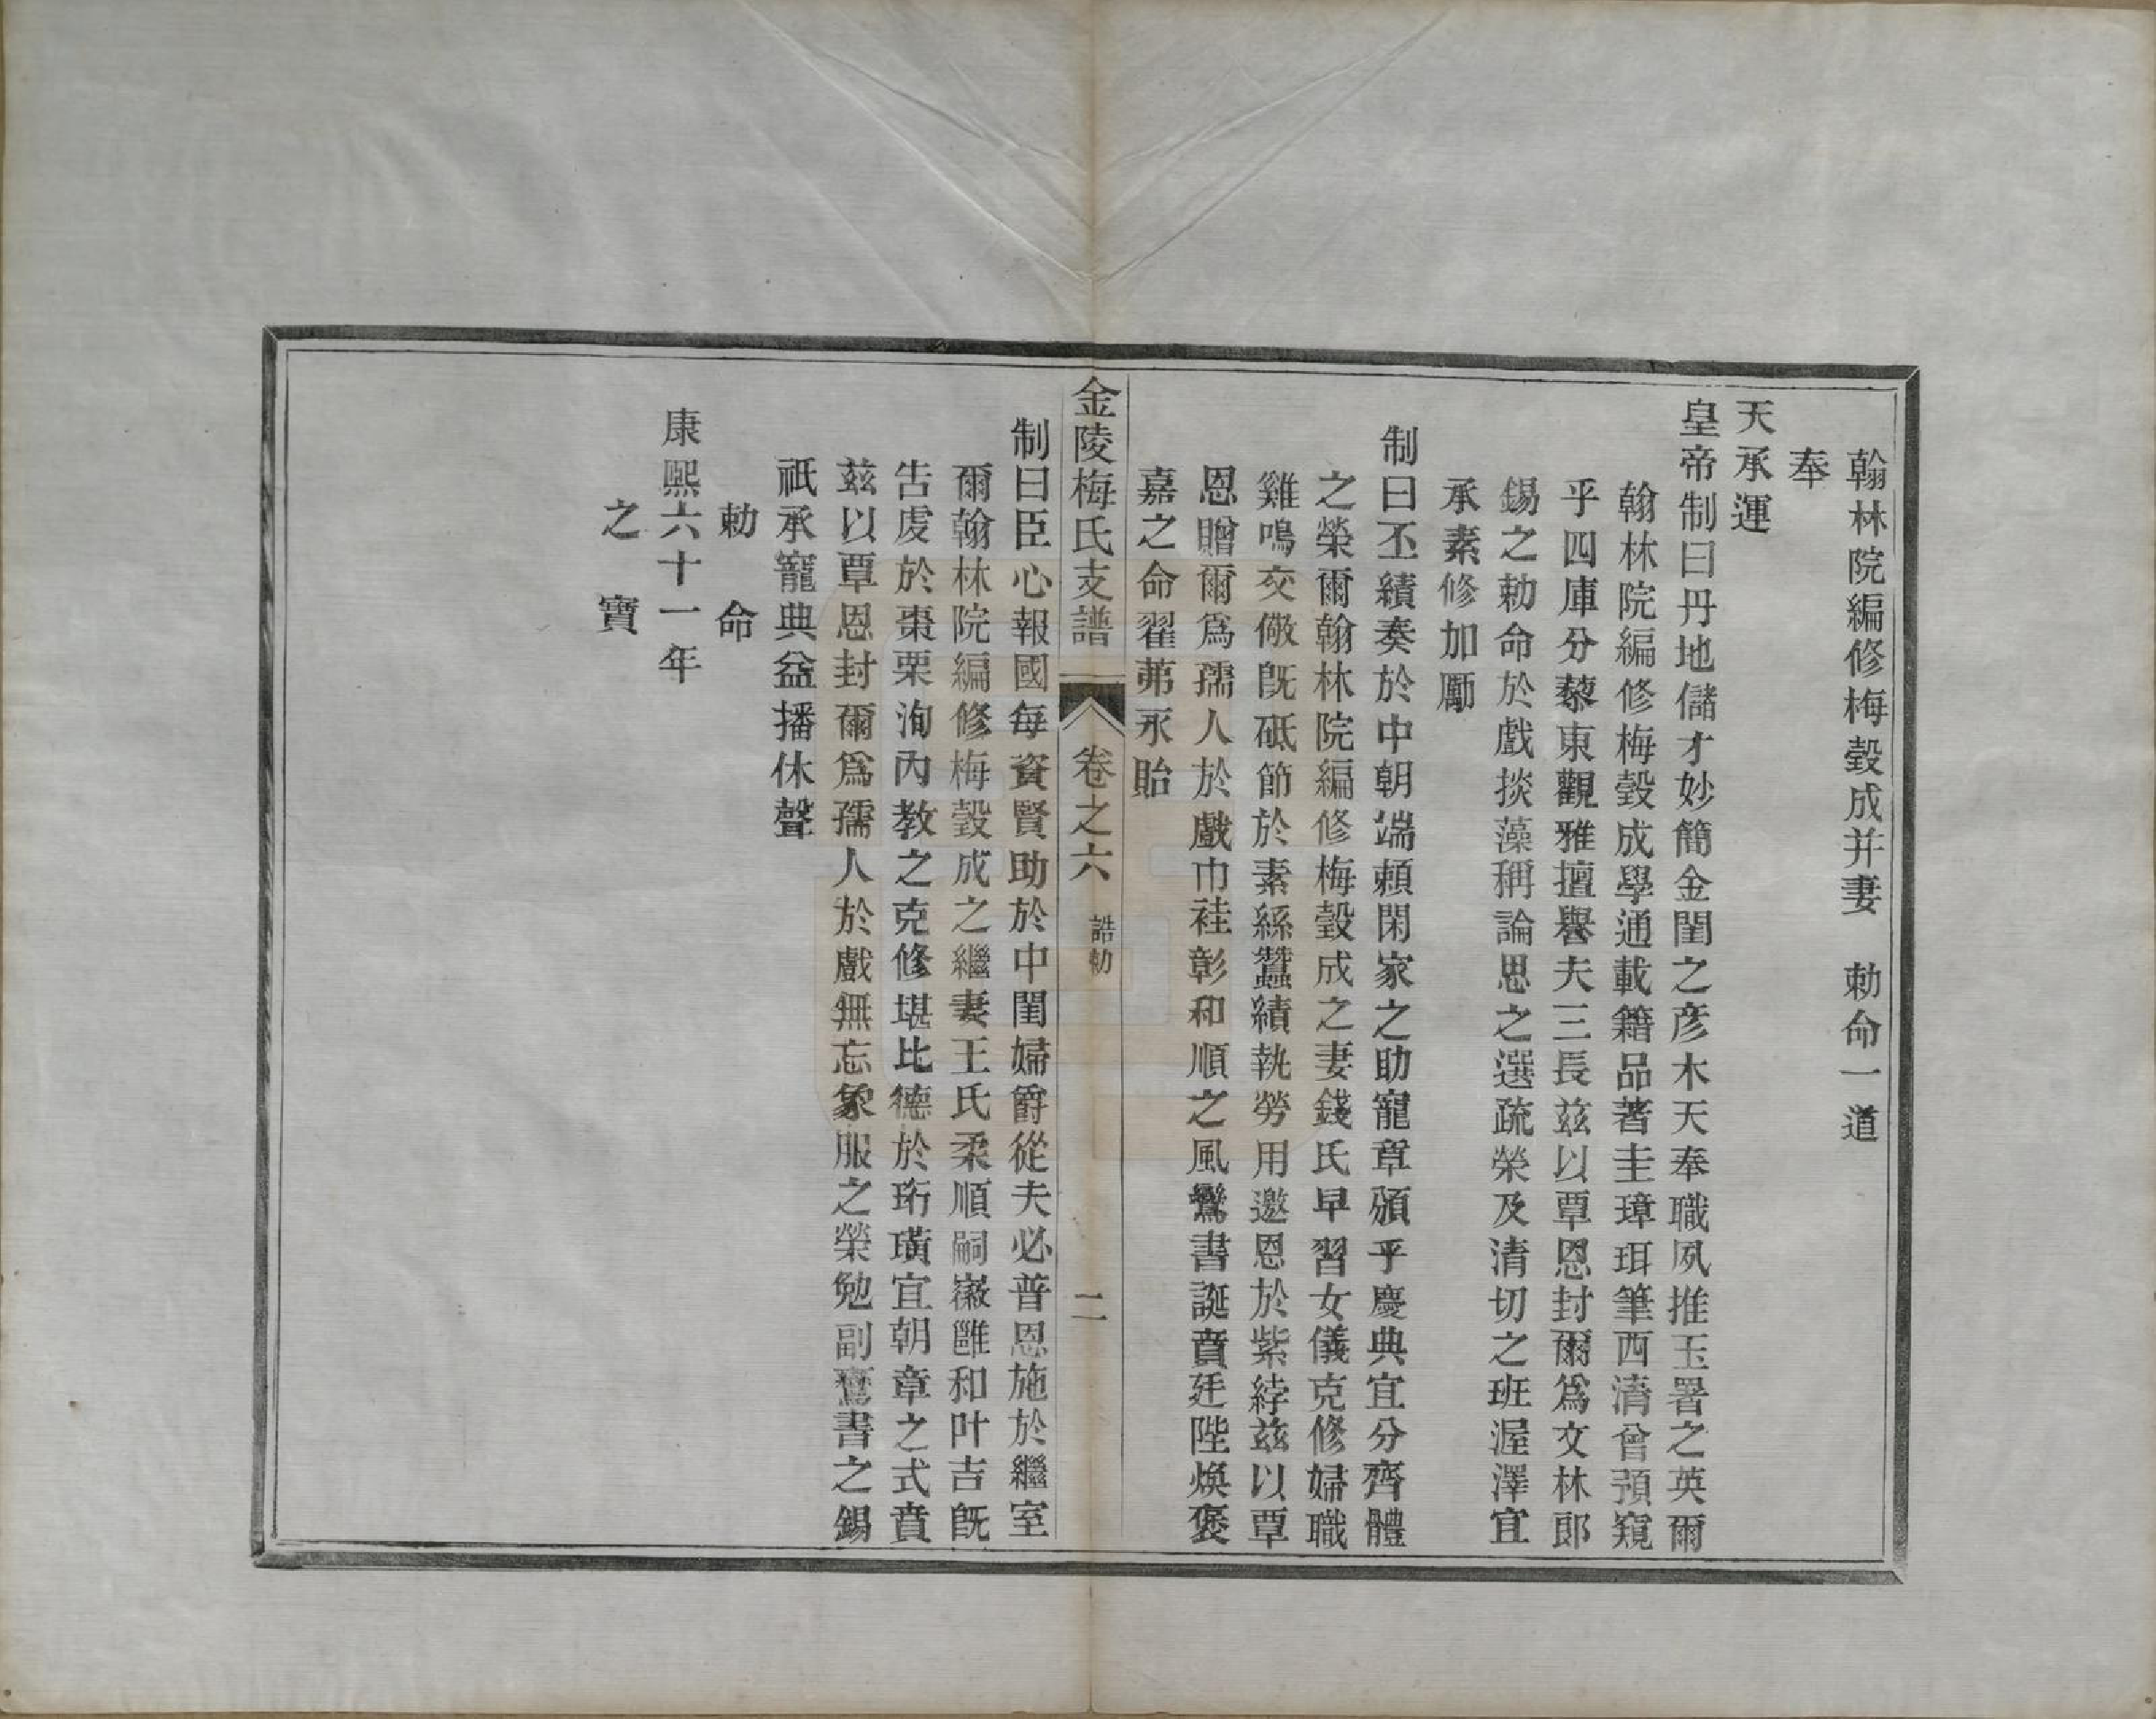 翰林院編修梅瑴成并妻　勅命一道
奉
天承運
皇帝制曰丹地儲才妙簡金閨之彥木天奉職夙推玉署之英爾
翰林院編修梅瑴成學通載籍品著圭璋珥筆西淸曾預窺
乎四庫分藜東觀雅擅譽夫三長茲以覃恩封爾爲文林郎
錫之勅命於戲掞藻稱論思之選疏榮及清切之班渥澤宜
承素修加勵
制曰丕績奏於中朝端賴閑家之助寵章頒乎慶典宜分齊體
之榮爾翰林院編修梅瑴成之妻錢氏早習女儀克修婦職
雞鳴交儆旣砥節於素絲蠶績執勞用邀恩於紫綍茲以覃
恩贈爾爲孺人於戲巾袿彰和順之風鸞書誕賁廷陛煥褒
嘉之命翟茀永貽
金陵梅氏支譜　卷之六　誥勅　二
制曰臣心報國每資賢助於中閨婦爵從夫必普恩施於繼室
爾翰林院編修梅瑴成之繼妻王氏柔順嗣徽雝和叶吉旣
告虔於棗栗洵內敎之克修堪比德於珩璜宜朝章之式賁
茲以覃恩封爾爲孺人於戲無忘象服之榮勉副鸞書之錫
祇承寵典益播休聲
勅命
康熙六十一年
之寶